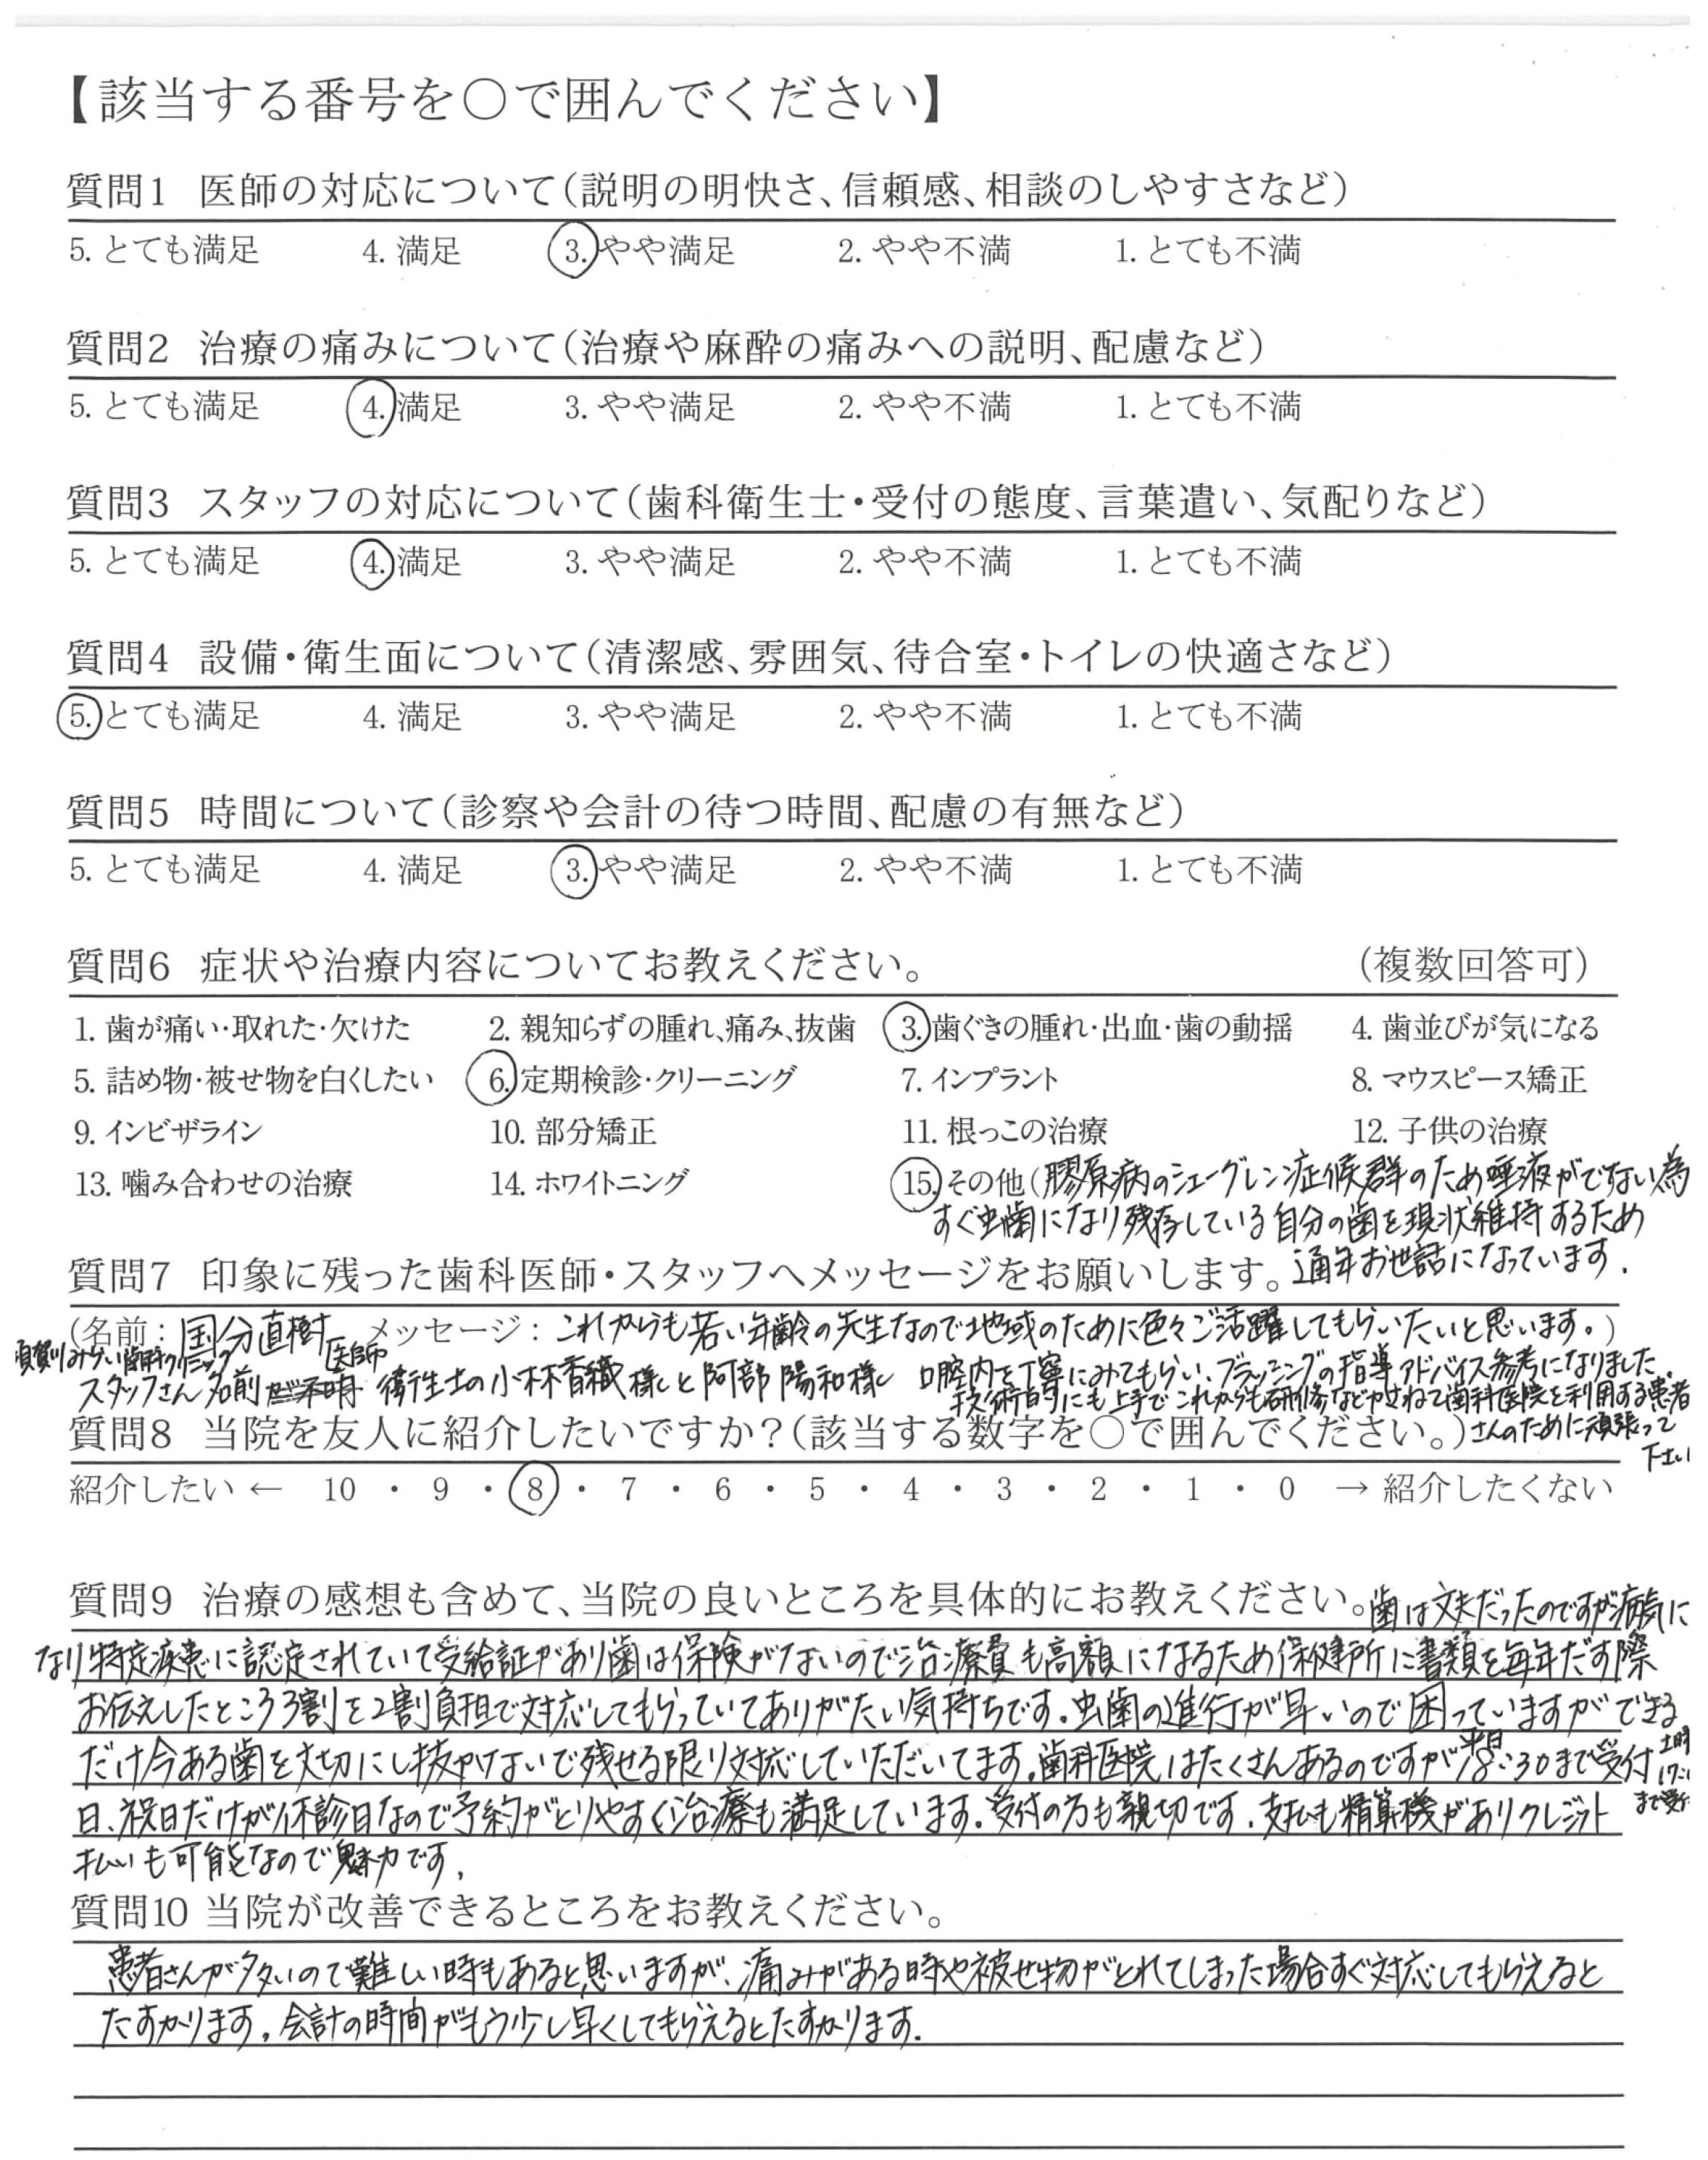 【該当する番号を○で囲んでください】
質問1 医師の対応について(説明の明快さ、信頼感、相談のしやすさなど)
5. とても満足 4. 満足 3. やや満足 2. やや不満 1. とても不満
質問2 治療の痛みについて(治療や麻酔の痛みへの説明、配慮など)
5. とても満足 4. 満足 3. やや満足 2. やや不満 1. とても不満
質問3 スタッフの対応について(歯科衛生士・受付の態度、言葉遣い、気配りなど)
5. とても満足 4. 満足 3. やや満足 2. やや不満 1. とても不満
質問4 設備・衛生面について(清潔感、雰囲気、待合室・トイレの快適さなど)
5. とても満足 4. 満足 3. やや満足 2. やや不満 1. とても不満
質問5 時間について(診察や会計の待つ時間、配慮の有無など)
5. とても満足 4. 満足 3. やや満足 2. やや不満 1. とても不満
質問6 症状や治療内容についてお教えください。 (複数回答可)
1. 歯が痛い・取れた・欠けた 2. 親知らずの腫れ、痛み、抜歯 3. 歯ぐきの腫れ・出血・歯の動揺 4. 歯並びが気になる
5. 詰め物・被せ物を白くしたい 6. 定期検診・クリーニング 7. インプラント 8. マウスピース矯正
9. インビザライン 10. 部分矯正 11. 根っこの治療 12. 子供の治療
13. 噛み合わせの治療 14. ホワイトニング 15. その他(膠原病のシェーグレン症候群のため唾液がでない為
すぐ虫歯になり残存している自分の歯を現状維持するため
通年お世話になっています.
質問7 印象に残った歯科医師・スタッフへメッセージをお願いします。
(名前:国分直樹 メッセージ:これからも若い年齢の先生なので地域のために色々ご活躍してもらいたいと思います。)
須賀川みらい歯科クリニック 医師
スタッフさん名前が不明 衛生士の小林香織様と阿部陽和様 口腔内を丁寧にみてもらい、ブラッシングの指導、アドバイス参考になりました。
技術的にも上手でこれからも研修などかさねて歯科医院を利用する患者
さんのために頑張って
下さい
質問8 当院を友人に紹介したいですか?(該当する数字を○で囲んでください。)
紹介したい ← 10 ・ 9 ・ 8 ・ 7 ・ 6 ・ 5 ・ 4 ・ 3 ・ 2 ・ 1 ・ 0 → 紹介したくない
質問9 治療の感想も含めて、当院の良いところを具体的にお教えください。歯は丈夫だったのですが病気に
なり特定疾患に認定されていて受給証があり歯は保険がないので治療費も高額になるため保健所に書類を毎年だす際
お伝えしたところ3割を2割負担で対応してもらっていてありがたい気持ちです。虫歯の進行が早いので困っていますができる
だけ今ある歯を大切にし抜かないで残せる限り対応していただいてます。歯科医院はたくさんあるのですが平日18:30まで受付
まで受付
日、祝日だけが休診日なので予約がとりやすく治療も満足しています。受付の方も親切です。支払も精算機がありクレジット
払いも可能なので魅力です。
質問10 当院が改善できるところをお教えください。
患者さんが多いので難しい時もあると思いますが、痛みがある時や被せ物がとれてしまった場合すぐ対応してもらえると
たすかります。会計の時間がもう少し早くしてもらえるとたすかります.